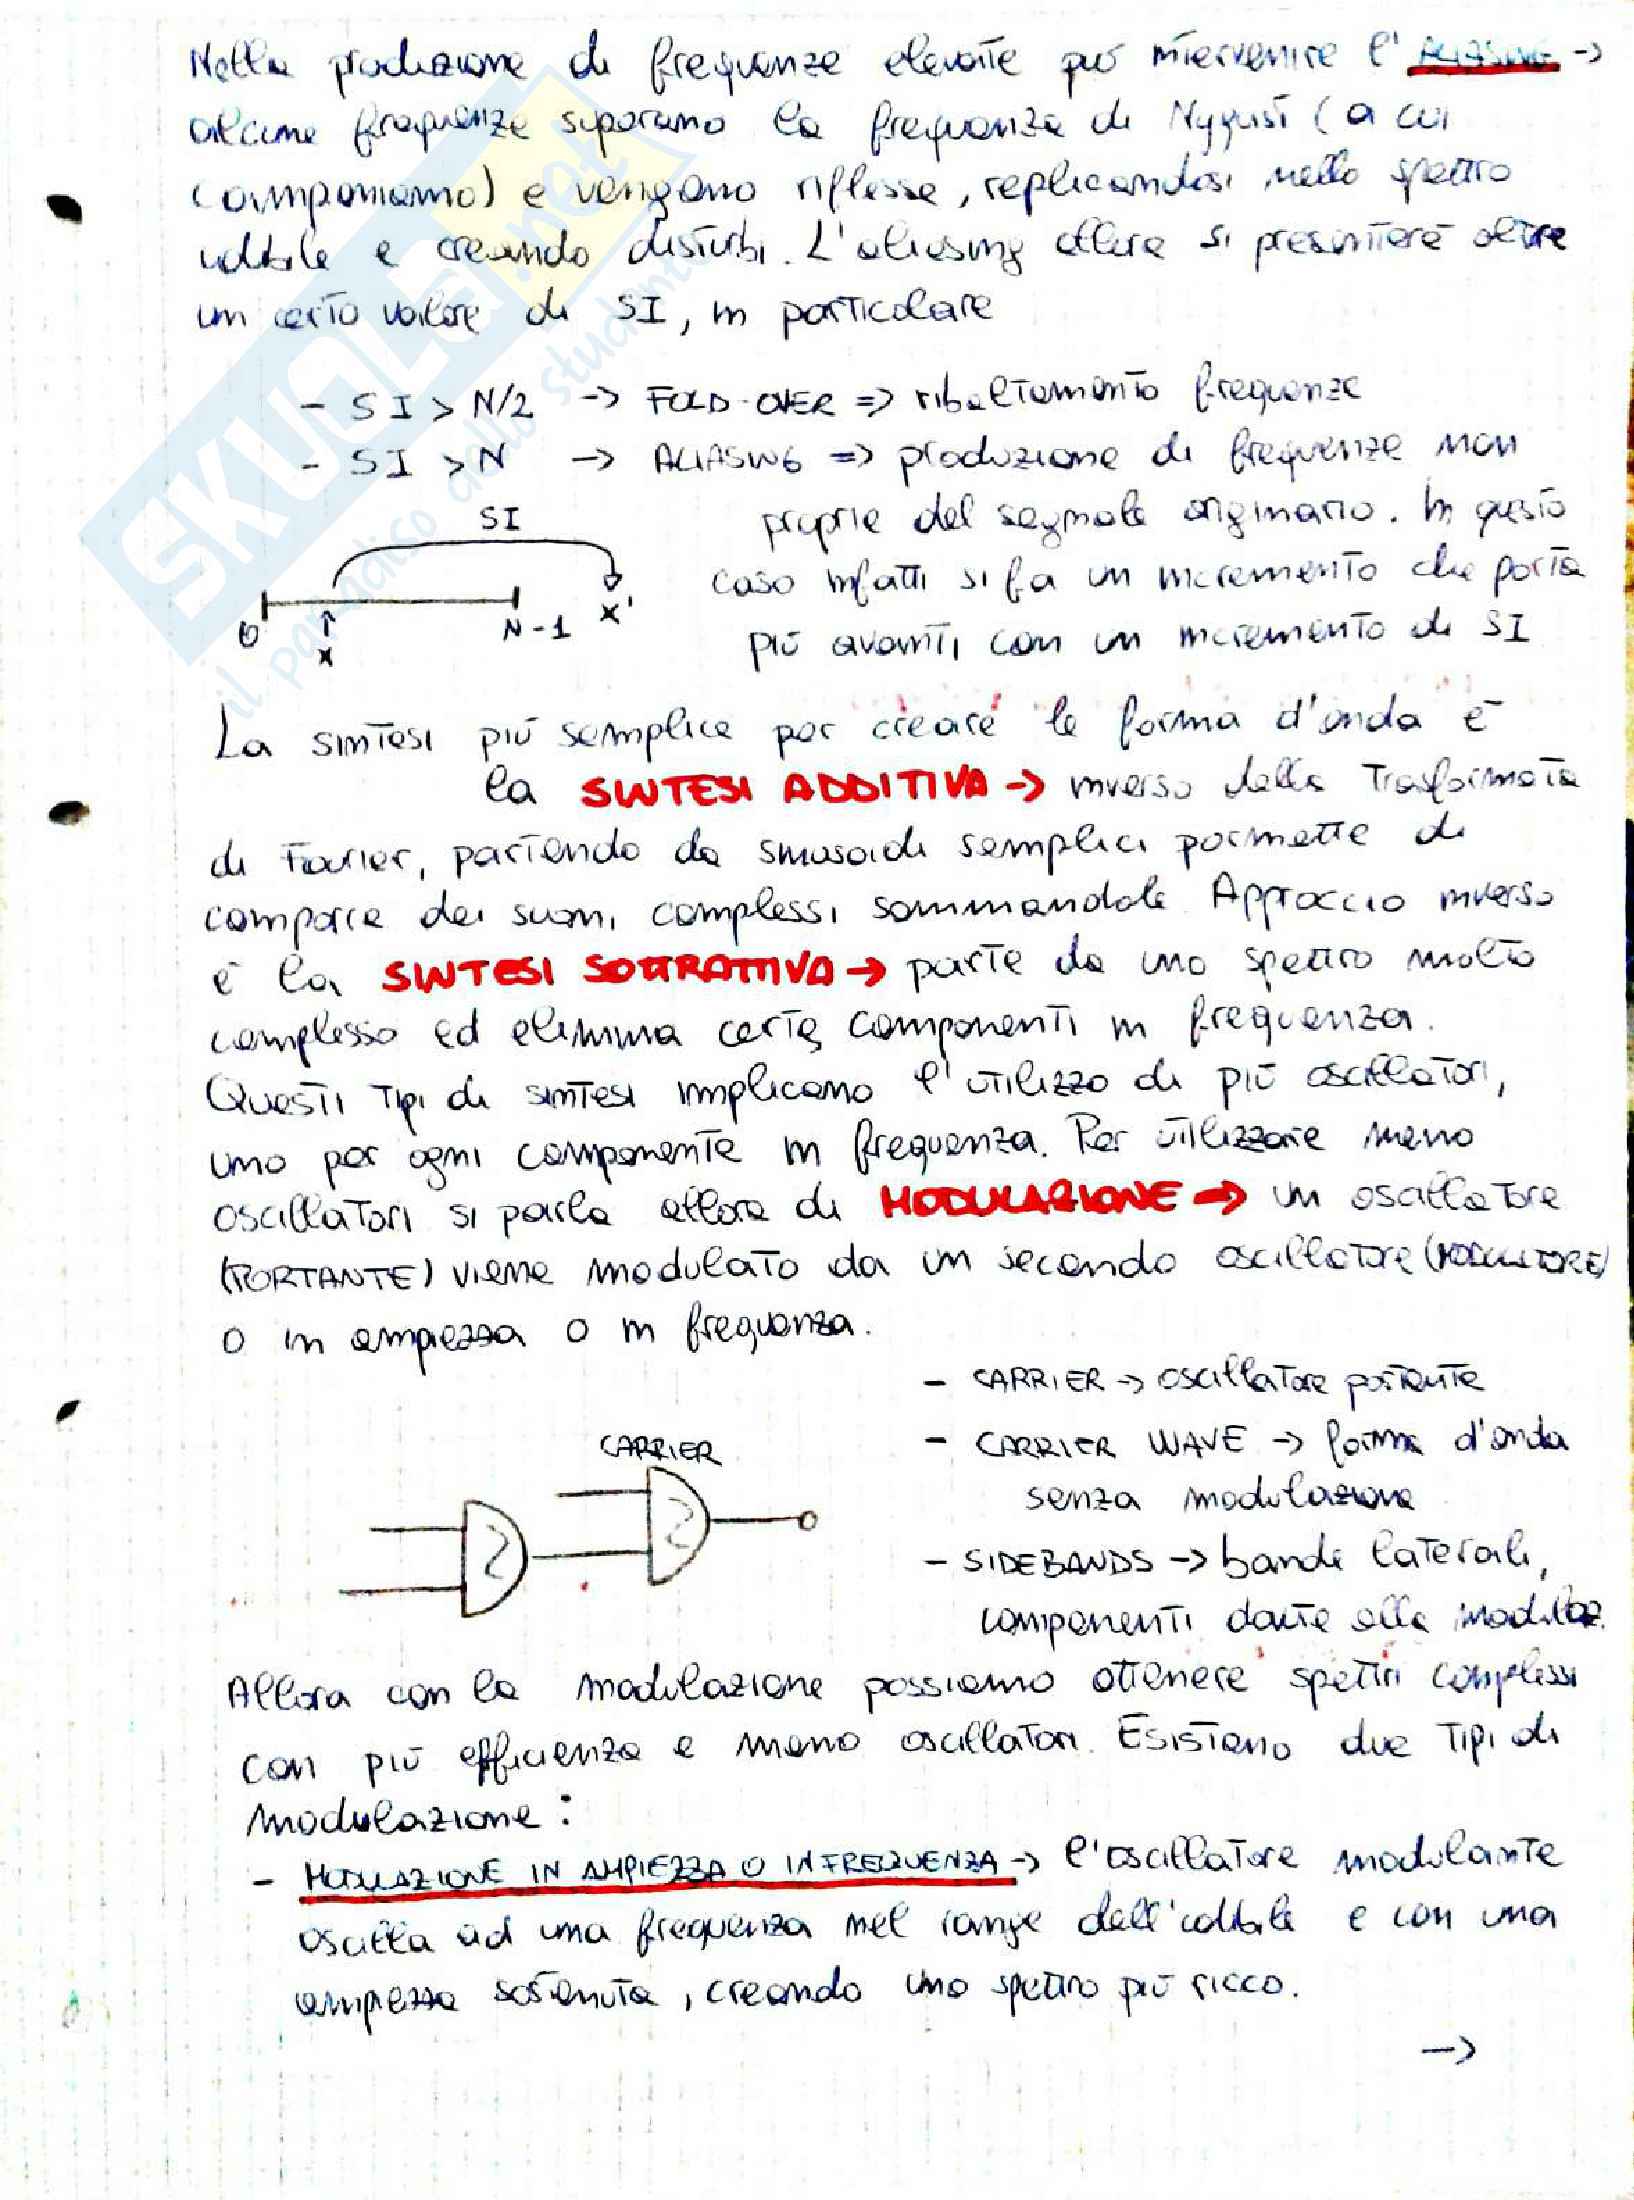 Nella produzione di frequenze elevate può intervenire l'ALIASING →
alcune frequenze superano la frequenza di Nyquist (a cui
campioniamo) e vengono riflesse, replicandosi nello spettro
udibile e creando disturbi. L'aliasing allora si presenterà oltre
un certo valore di SI, in particolare
- SI > N/2 → FOLD-OVER => ribaltamento frequenze
- SI > N → ALIASING => produzione di frequenze non
proprie del segnale originario. In questo
caso infatti si fa un incremento che porta
più avanti con un incremento di SI
SI
0 x N-1 x'
La sintesi più semplice per creare le forma d'onda è
la SINTESI ADDITIVA → inverso della Trasformata
di Fourier, partendo da sinusoidi semplici permette di
comporre dei suoni complessi sommandole. Approccio inverso
è la SINTESI SOTTRATTIVA → parte da uno spettro molto
complesso ed elimina certe componenti in frequenza.
Questi tipi di sintesi implicano l'utilizzo di più oscillatori,
uno per ogni componente in frequenza. Per utilizzare meno
oscillatori si parla allora di MODULAZIONE → un oscillatore
(PORTANTE) viene modulato da un secondo oscillatore (MODULATORE)
o in ampiezza o in frequenza.
- CARRIER → oscillatore portante
- CARRIER WAVE → forma d'onda
senza modulazione
- SIDEBANDS → bande laterali,
componenti date alla modulaz.
CARRIER
Allora con la modulazione possiamo ottenere spettri complessi
con più efficienza e meno oscillatori. Esistono due tipi di
modulazione:
- MODULAZIONE IN AMPIEZZA O IN FREQUENZA → l'oscillatore modulante
oscilla ad una frequenza nel range dell'udibile e con una
ampiezza sostenuta, creando uno spettro più ricco.
→
SKUOLA.net
il paradiso dello studente